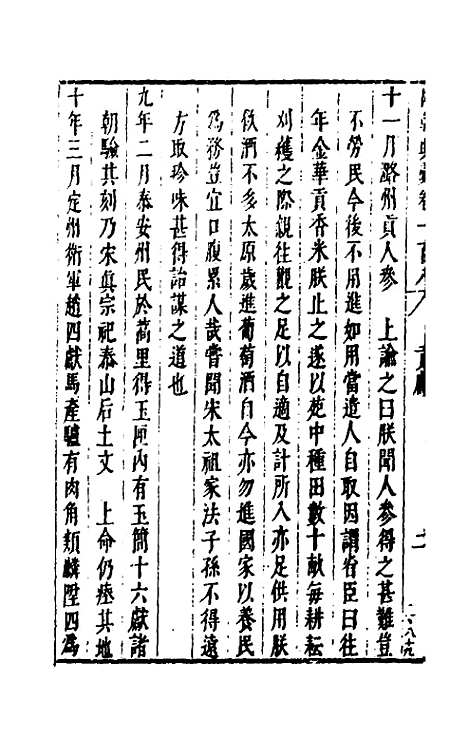 國朝典彙卷一百八 貢獻 二
十一月潞州貢人參 上諭之曰朕聞人參得之甚難豈
不勞民今後不用進如用當遣人自取因謂省臣曰往
年金華貢香米朕止之遂以苑中種田數十畝每耕耘
刈穫之際親往觀之足以自適及計所入亦足供用朕
飲酒不多太原歲進葡萄酒自今亦勿進國家以養民
爲務豈宜口腹累人哉嘗聞宋太祖家法子孫不得遠
方取珍味甚得詒謀之道也
九年二月泰安州民於蒿里得玉匣內有玉簡十六獻諸
朝驗其刻乃宋眞宗祀泰山后土文 上命仍瘞其地
十年三月定州衛軍趙四獻馬產驢有肉角類麟陞四爲